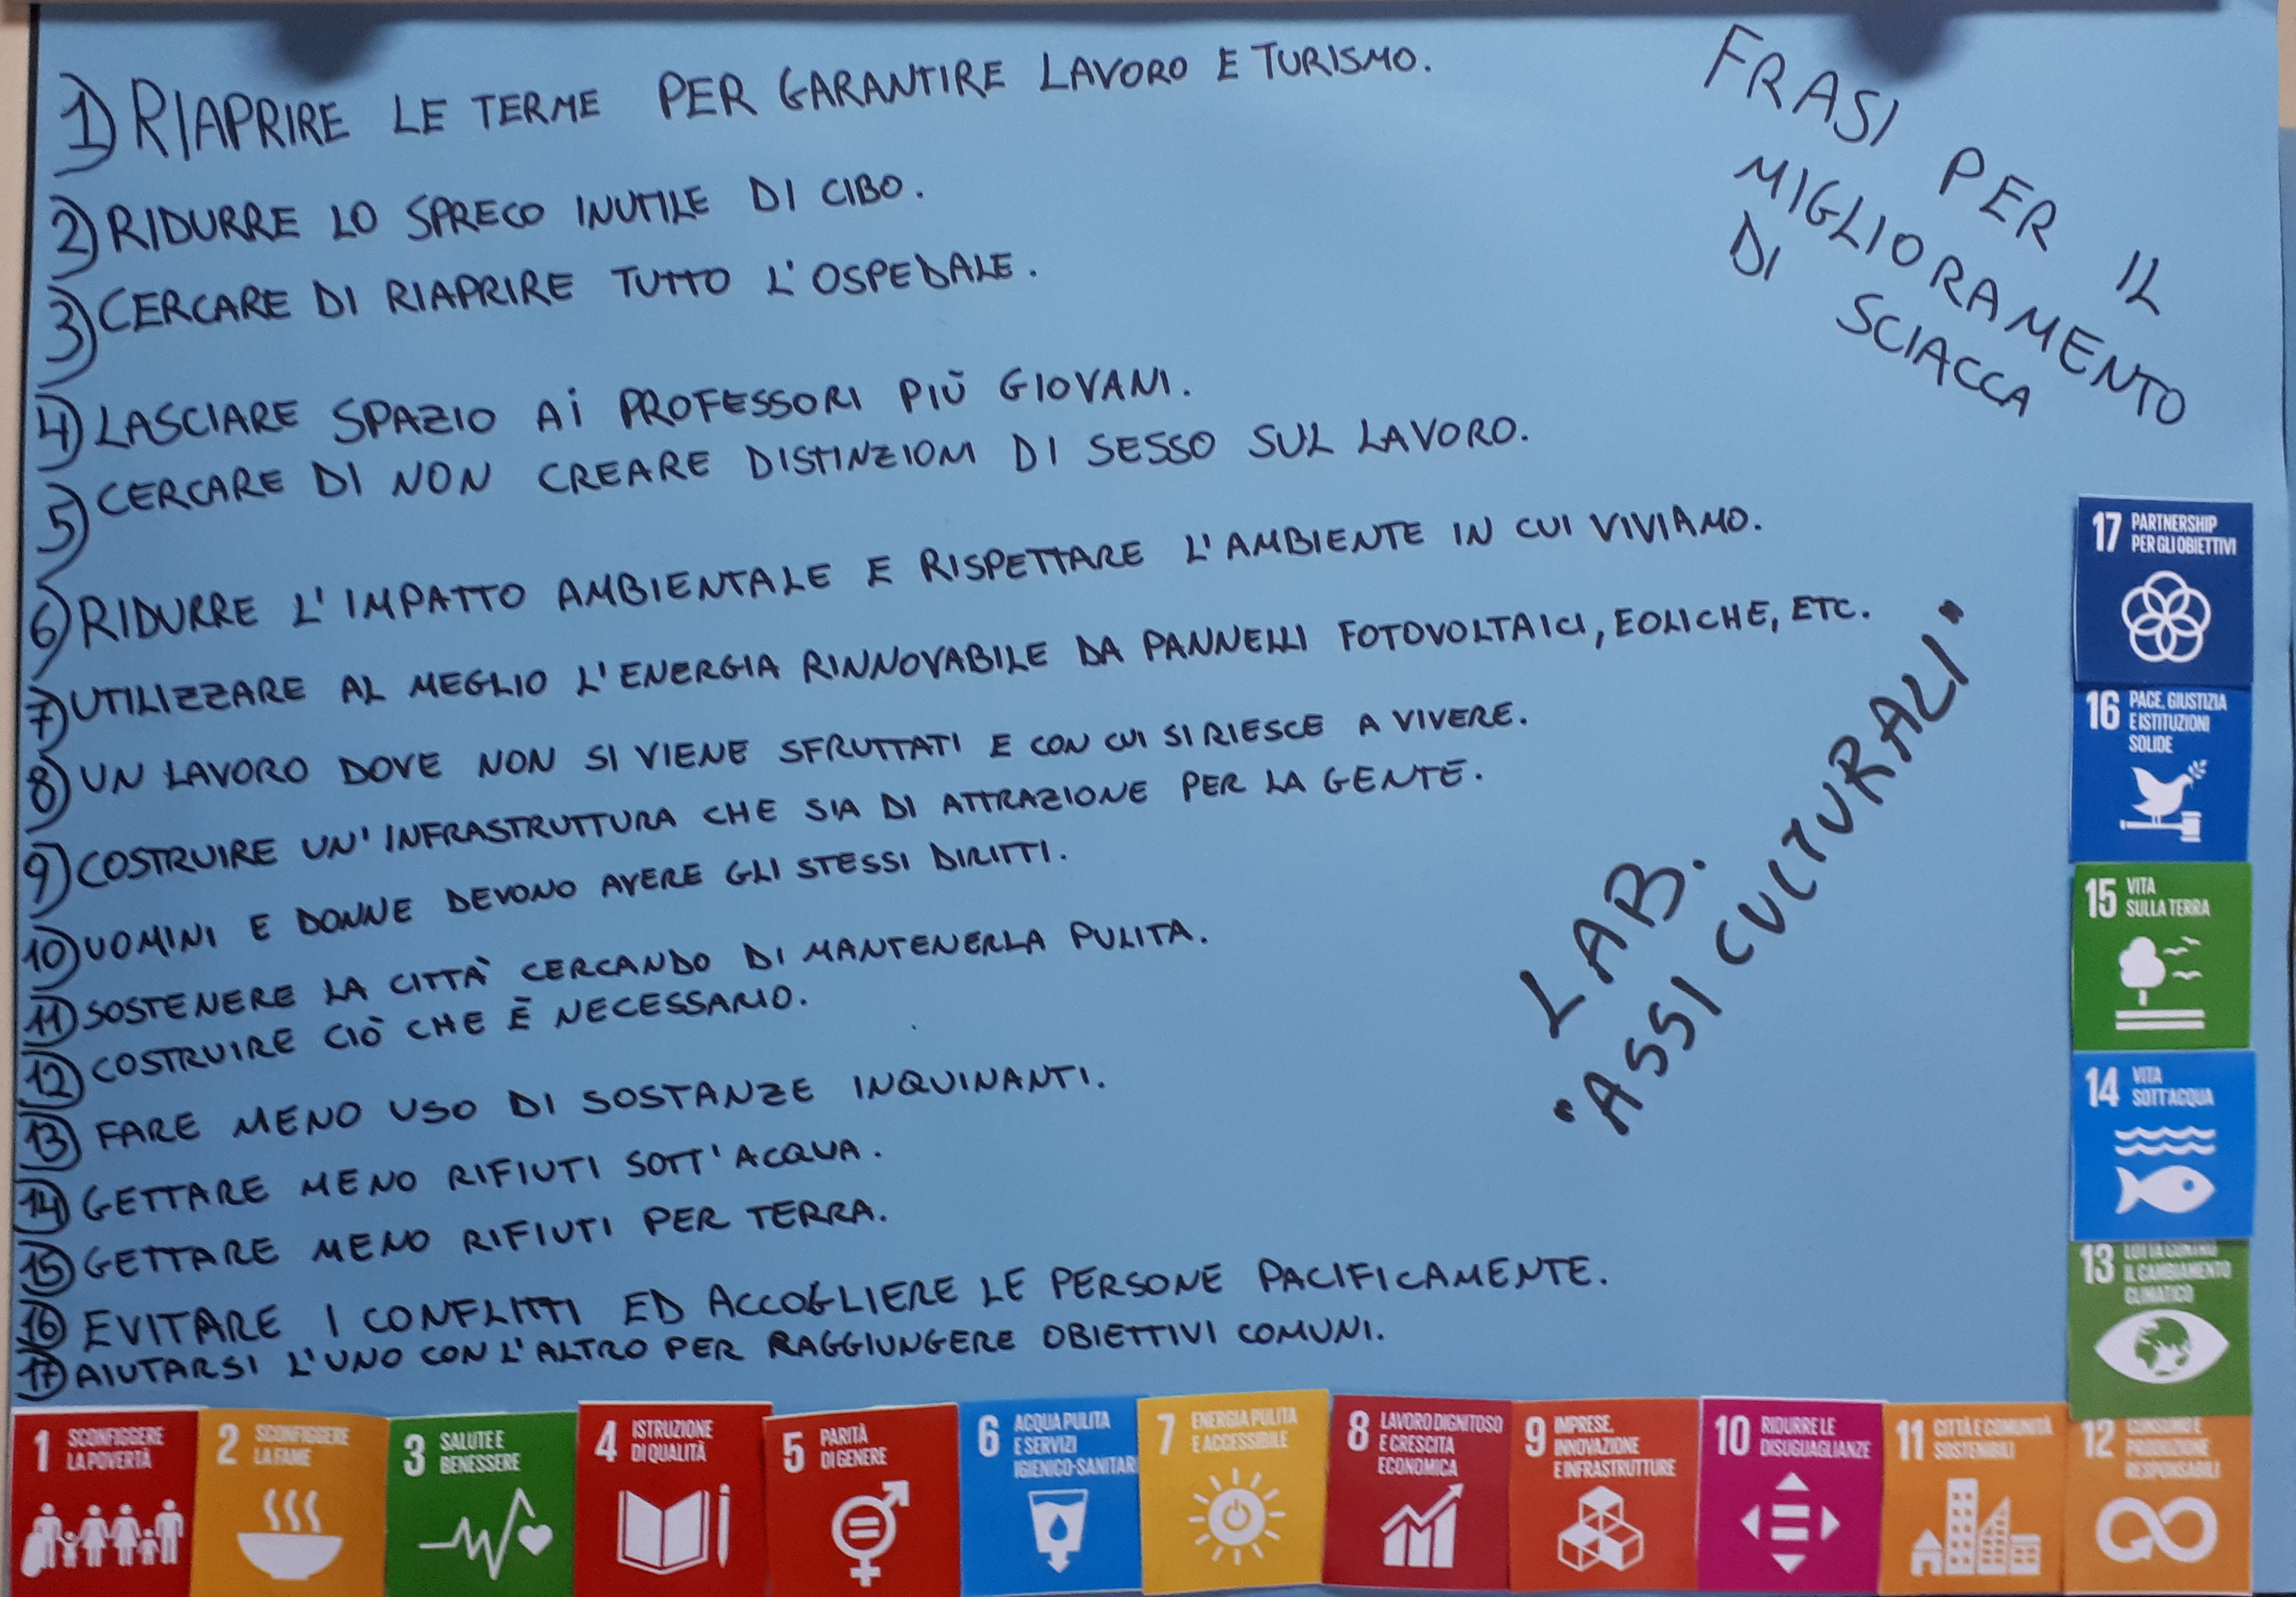 1) RIAPRIRE LE TERME PER GARANTIRE LAVORO E TURISMO.
2) RIDURRE LO SPRECO INUTILE DI CIBO.
3) CERCARE DI RIAPRIRE TUTTO L'OSPEDALE.
4) LASCIARE SPAZIO Ai PROFESSORI PIÙ GIOVANI.
5) CERCARE DI NON CREARE DISTINZIONI DI SESSO SUL LAVORO.
6) RIDURRE L'IMPATTO AMBIENTALE E RISPETTARE L'AMBIENTE IN CUI VIVIAMO.
7) UTILIZZARE AL MEGLIO L'ENERGIA RINNOVABILE DA PANNELLI FOTOVOLTAICI, EOLICHE, ETC.
8) UN LAVORO DOVE NON SI VIENE SFRUTTATI E CON CUI SI RIESCE A VIVERE.
9) COSTRUIRE UN'INFRASTRUTTURA CHE SIA DI ATTRAZIONE PER LA GENTE.
10) UOMINI E DONNE DEVONO AVERE GLI STESSI DIRITTI.
11) SOSTENERE LA CITTÀ CERCANDO DI MANTENERLA PULITA.
12) COSTRUIRE CIÒ CHE È NECESSARIO.
13) FARE MENO USO DI SOSTANZE INQUINANTI.
14) GETTARE MENO RIFIUTI SOTT'ACQUA.
15) GETTARE MENO RIFIUTI PER TERRA.
16) EVITARE I CONFLITTI ED ACCOGLIERE LE PERSONE PACIFICAMENTE.
17) AIUTARSI L'UNO CON L'ALTRO PER RAGGIUNGERE OBIETTIVI COMUNI.
FRASI PER IL
MIGLIORAMENTO
DI SCIACCA
LAB.
"ASSI CULTURALI"
17 PARTNERSHIP
PER GLI OBIETTIVI
16 PACE, GIUSTIZIA
E ISTITUZIONI
SOLIDE
15 VITA
SULLA TERRA
14 VITA
SOTT'ACQUA
13 LOTTA CONTRO
IL CAMBIAMENTO
CLIMATICO
1 SCONFIGGERE
LA POVERTÀ
2 SCONFIGGERE
LA FAME
3 SALUTE E
BENESSERE
4 ISTRUZIONE
DI QUALITÀ
5 PARITÀ
DI GENERE
6 ACQUA PULITA
E SERVIZI
IGIENICO-SANITARI
7 ENERGIA PULITA
E ACCESSIBILE
8 LAVORO DIGNITOSO
E CRESCITA
ECONOMICA
9 IMPRESE,
INNOVAZIONE
E INFRASTRUTTURE
10 RIDURRE LE
DISUGUAGLIANZE
11 CITTÀ E COMUNITÀ
SOSTENIBILI
12 CONSUMO E
PRODUZIONE
RESPONSABILI